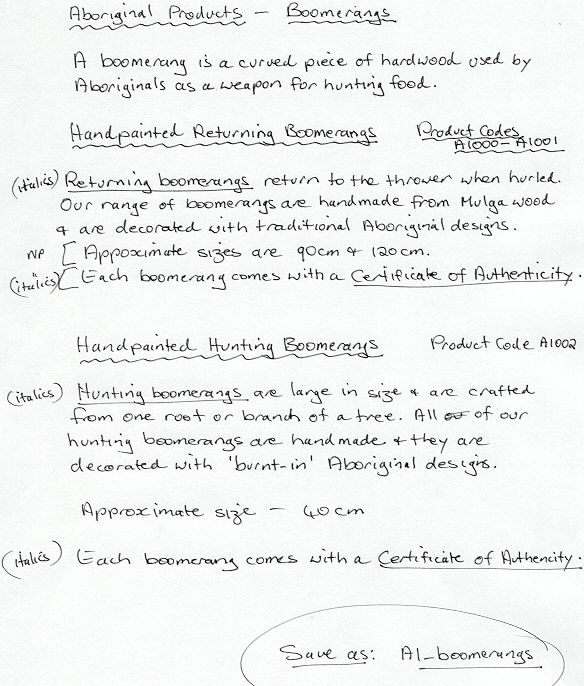 Aboriginal Products – Boomerangs
A boomerang is a curved piece of hardwood used by
Aboriginals as a weapon for hunting food.
Handpainted Returning Boomerangs Product Codes
A1000 – A1001
(italics) Returning boomerangs return to the thrower when hurled.
Our range of boomerangs are handmade from Mulga wood
& are decorated with traditional Aboriginal designs.
NP [ Appoximate sizes are 90cm & 120cm.
(italics) [ Each boomerang comes with a Certificate of Authenticity.
Handpainted Hunting Boomerangs Product Code A1002
(italics) Hunting boomerangs are large in size & are crafted
from one root or branch of a tree. All of our
hunting boomerangs are handmade & they are
decorated with 'burnt-in' Aboriginal designs.
Approximate size – 40cm
(italics) Each boomerang comes with a Certificate of Authencity.
Save as: A1_boomerangs